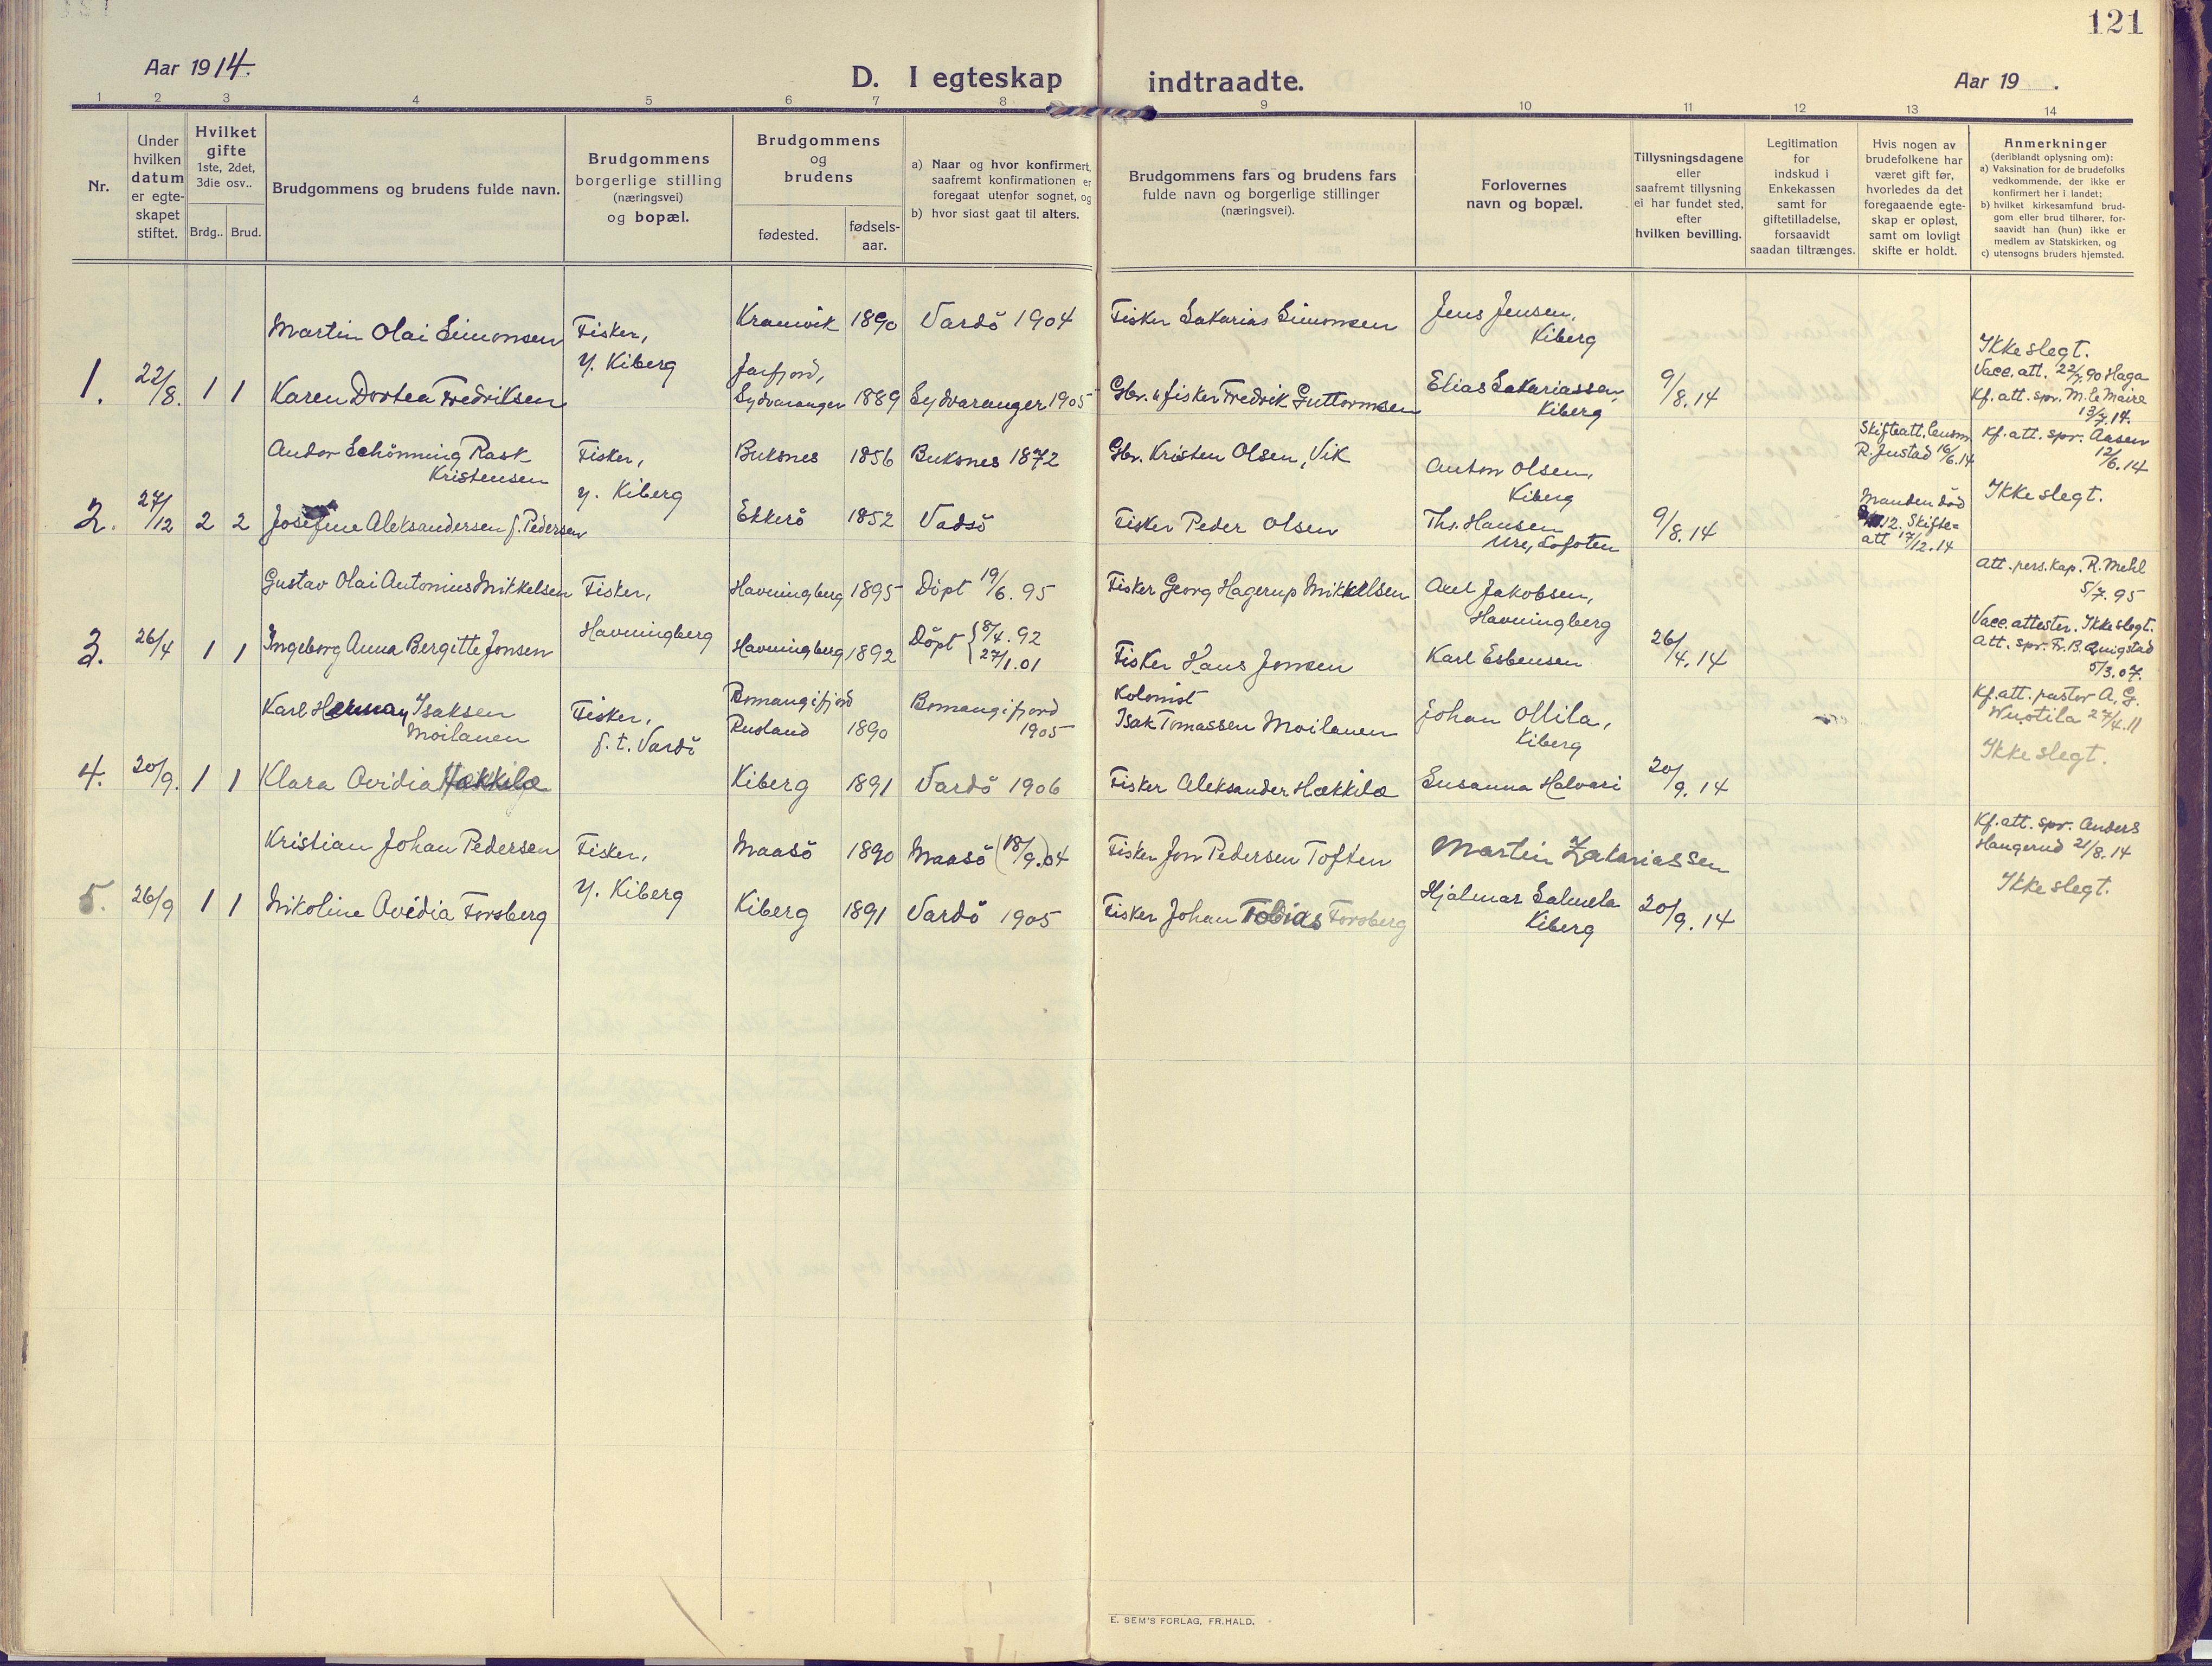 121
Aar 1914.
D. I egteskap indtraadte.
Aar 19 .
1 2 3 4 5 6 7 8 9 10 11 12 13 14
Nr.
Under
hvilken
datum
er egte-
skapet
stiftet.
Hvilket
gifte
1ste, 2det,
3die osv..
Brdg.. Brud.
Brudgommens og brudens fulde navn.
Brudgommens
borgerlige stilling
(næringsvei)
og bopæl.
Brudgommens
og
brudens
fødested.
fødsels-
aar.
a) Naar og hvor konfirmert,
saafremt konfirmationen er
foregaat utenfor sognet, og
b) hvor sidst gaat til alters.
Brudgommens fars og brudens fars
fulde navn og borgerlige stillinger
(næringsvei).
Forlovernes
navn og bopæl.
Tillysningsdagene
eller
saafremt tillysning
ei har fundet sted,
efter
hvilken bevilling.
Legitimation
for
indskud i
Enkekassen
samt for
giftetilladelse,
forsaavidt
saadan tiltrænges.
Hvis nogen av
brudefolkene har
været gift før,
hvorledes da det
foregaaende egte-
skap er opløst,
samt om lovligt
skifte er holdt.
Anmerkninger
(deriblandt oplysning om):
a) Vaksination for de brudefolks
vedkommende, der ikke er
konfirmert her i landet;
b) hvilket kirkesamfund brud-
gom eller brud tilhører, for-
saavidt han (hun) ikke er
medlem av Statskirken, og
c) utensogns bruders hjemsted.
1. 22/8. 1 1
Martin Olai Simonsen
Karen Dortea Fredriksen
Fisker,
y. Kiberg
Kramvik 1890 Vardö 1904
Jarfjord,
Sydvaranger 1889 Sydvaranger 1905
Fisker Sakarias Simonsen
Gbr. & fisker Fredrik Guttormsen
Jens Jensen,
Kiberg
Elias Sakariassen,
Kiberg
9/8.14
Ikke slegt.
Vacc. att. 22/7.90 Haga
Kf. att. spr. M. le Maire
13/7.14.
2. 27/12 2 2
Andor Schönning Rask
Kristensen
Josefine Aleksandersen f. Pedersen
Fisker,
y. Kiberg
Buksnes 1856 Buksnes 1872
Ekkerö 1852 Vadsö
Gbr. Kristen Olsen, Vik
Fisker Peder Olsen
Anton Olsen,
Kiberg
Ths. Hansen
Ure, Lofoten
9/8.14
Skifteatt. lensm.
R. Justad 16/6.14
Manden död
12. Skifte=
att 17/12.14
Kf. att. spr. Aasen
12/6.14
Ikke slegt.
3. 26/4 1 1
Gustav Olai Antonius Mikkelsen
Ingeborg Anna Bergitte Jonsen
Fisker,
Havningberg
Havningberg 1895 Döpt 19/6.95
Havningberg 1892 Döpt { 8/4.92
27/1.01
Fisker Georg Hagerup Mikkelsen
Fisker Hans Jonsen
Axel Jakobsen,
Havningberg
Karl Esbensen
26/4.14
Att. pers. kap. R. Mehl
5/7.95
Vacc. attester. Ikke slegt.
Att. spr. Fr. B. Qvigstad
5/3.07.
4. 20/9. 1 1
Karl Herman Isaksen
Moilanen
Klara Ovidia Hækkilæ
Fisker,
f. t. Vardö
Bomangifjord
Rusland 1890
Bomangifjord
1905
Kiberg 1891 Vardö 1906
Kolonist
Isak Tomassen Moilanen
Fisker Aleksander Hækkilæ
Johan Ollila,
Kiberg
Susanna Halvari
20/9.14
Kf. att. pastor A. G.
Wuotila 27/4.11
Ikke slegt.
5. 26/9 1 1
Kristian Johan Pedersen
Nikoline Ovidia Forsberg
Fisker,
y. Kiberg
Maasö 1890 Maasö (18/9.)04
Kiberg 1891 Vardö 1905
Fisker Jon Pedersen Toften
Fisker Johan Tobias Forsberg
Martin Zakariassen
Hjalmar Salmela
Kiberg
20/9.14
Kf. att. spr. Anders
Haugerud 21/8.14
Ikke slegt.
E. SEM'S FORLAG, FR.HALD.